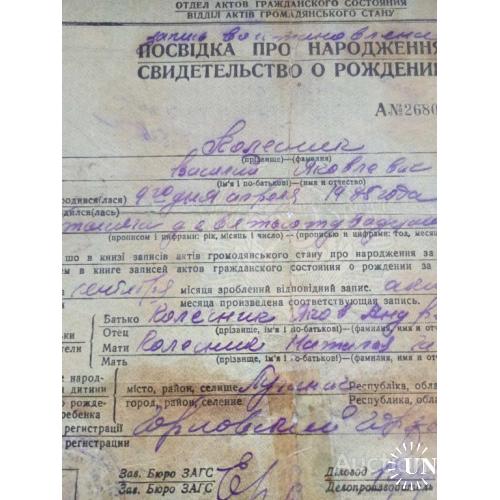 ОТДЕЛ АКТОВ ГРАЖДАНСКОГО СОСТОЯНИЯ
ВІДДІЛ АКТІВ ГРОМАДЯНСЬКОГО СТАНУ
запись восстановлена
ПОСВІДКА ПРО НАРОДЖЕННЯ
СВИДЕТЕЛЬСТВО О РОЖДЕНИИ
А№2680
Колесник
(прізвище)—(фамилия)
Василий Яковлевич
(ім'я і по-батькові)—(имя и отчество)
родився(лася) дня апреля года
дился(лась)
(прописом і цифрами: рік, місяць і число)—(прописью и цифрами: год, меся
що в книзі записів актів громадянського стану про народження за
ем в книге записей актов гражданского состояния о рождении за
сентября місяця зроблений відповідний запис.
месяца произведена соответствующая запись.
Батько Колесник Яков
Отец (прізвище, ім'я і по-батькові) (фамилия, имя и отч
ки
тели Мати Колесник
Мать (прізвище, ім'я і по-батькові) (фамилия, имя и о
е народ-
дитини місто, район, селище Республіка, обла
о рожде- город, район, селение Республика, обла
ребенка
реєстрації
регистрации
Зав. Бюро ЗАГС Діловод
Зав. Бюро ЗАГС Делопроизводитель
UN